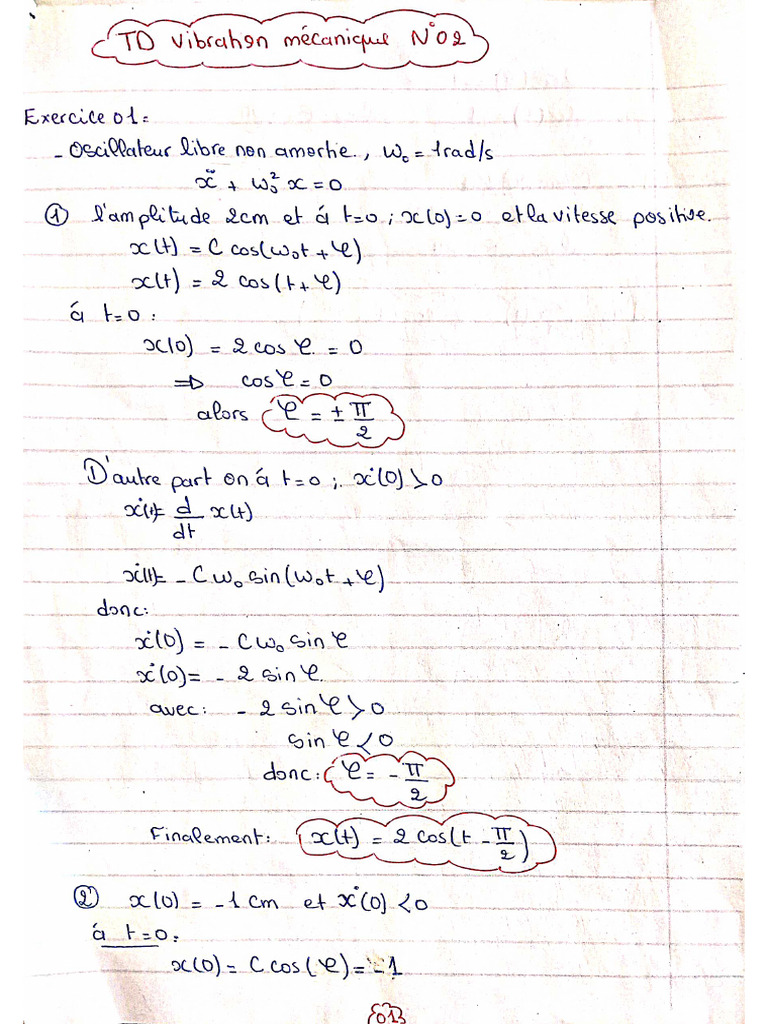 TD Vibration mécanique N°02
Exercice 01:
- Oscillateur libre non amortie., ω₀ = 1rad/s
ẍ + ω₀² x = 0
① l'amplitude 2cm et á t=0 ; x(0)=0 et la vitesse positive.
x(t) = C cos(ω₀t + φ)
x(t) = 2 cos(t + φ)
á t=0 :
x(0) = 2 cos φ = 0
⇒ cos φ = 0
alors φ = ± π/2
D'autre part on á t=0 ; ẋ(0) > 0
ẋ(t)= d/dt x(t)
ẋ(t)= - C ω₀ sin(ω₀t + φ)
donc:
ẋ(0) = - C ω₀ sin φ
ẋ(0) = - 2 sin φ
avec: - 2 sin φ > 0
sin φ < 0
donc: φ = - π/2
Finalement: x(t) = 2 cos(t - π/2)
② x(0) = -1 cm et ẋ(0) < 0
á t=0:
x(0) = C cos(φ) = -1
01